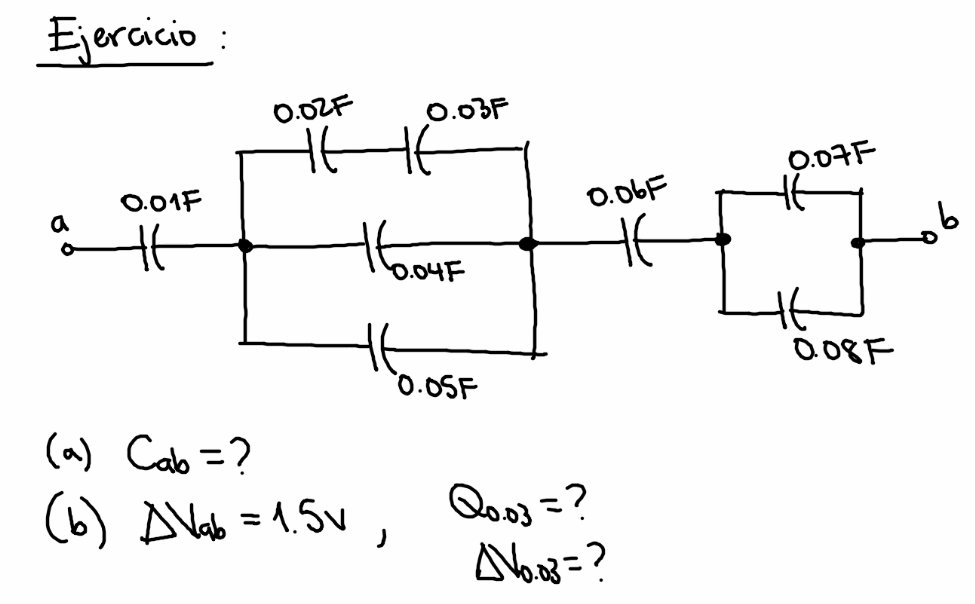 Ejercicio :
0.02F 0.03F
0.07F
0.01F 0.06F
a b
0.04F
0.08F
0.05F
(a) Cab = ?
(b) ΔVab = 1.5v , Q0.03 = ?
ΔV0.03 = ?